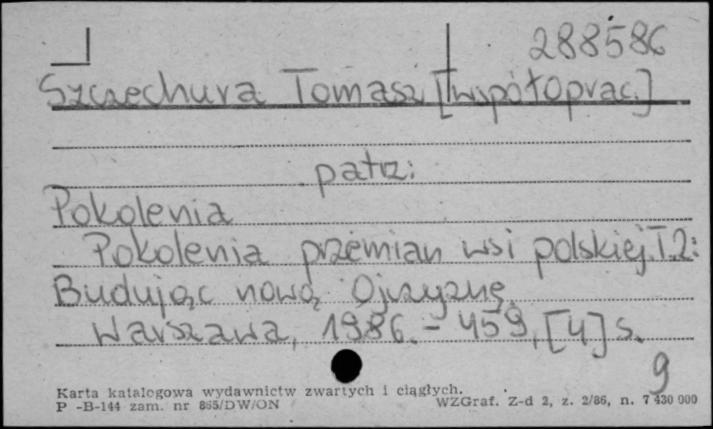 288586
Szczechura Tomasz [współoprac.]
patrz:
Pokolenia
Pokolenia przemian wsi polskiej. T.2:
Budując nową Ojczyznę.
Warszawa, 1986. - 459, [4] s.
9
Karta katalogowa wydawnictw zwartych i ciągłych.
P -B-144 zam. nr 865/DW/ON WZGraf. Z-d 2, z. 2/86, n. 7 430 000